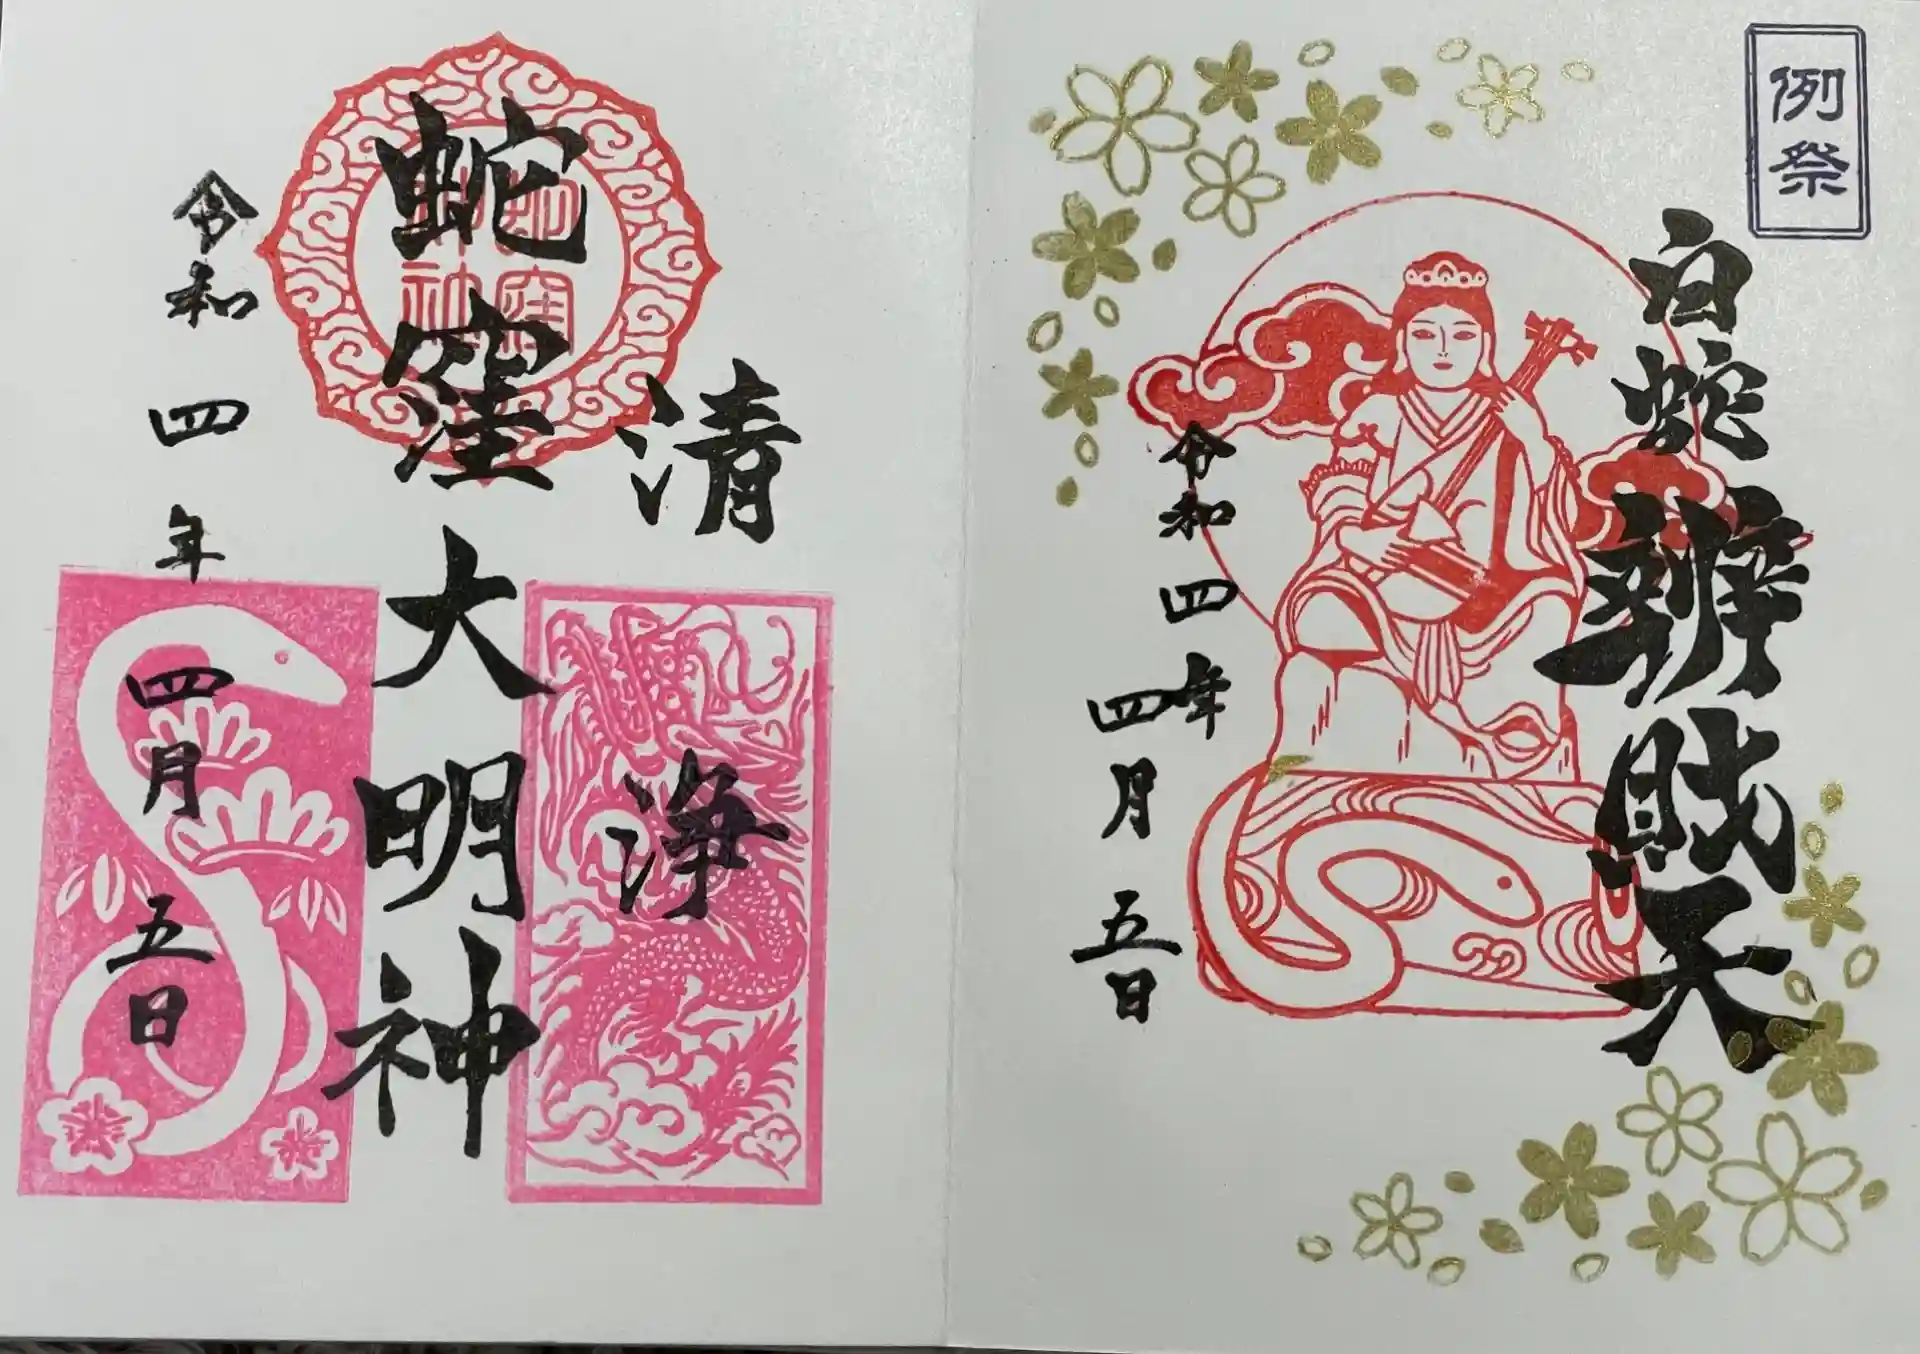 例祭
白蛇辨財天
令和四年
四月五日
清浄
蛇窪大明神
蛇窪神社
令和四年四月五日